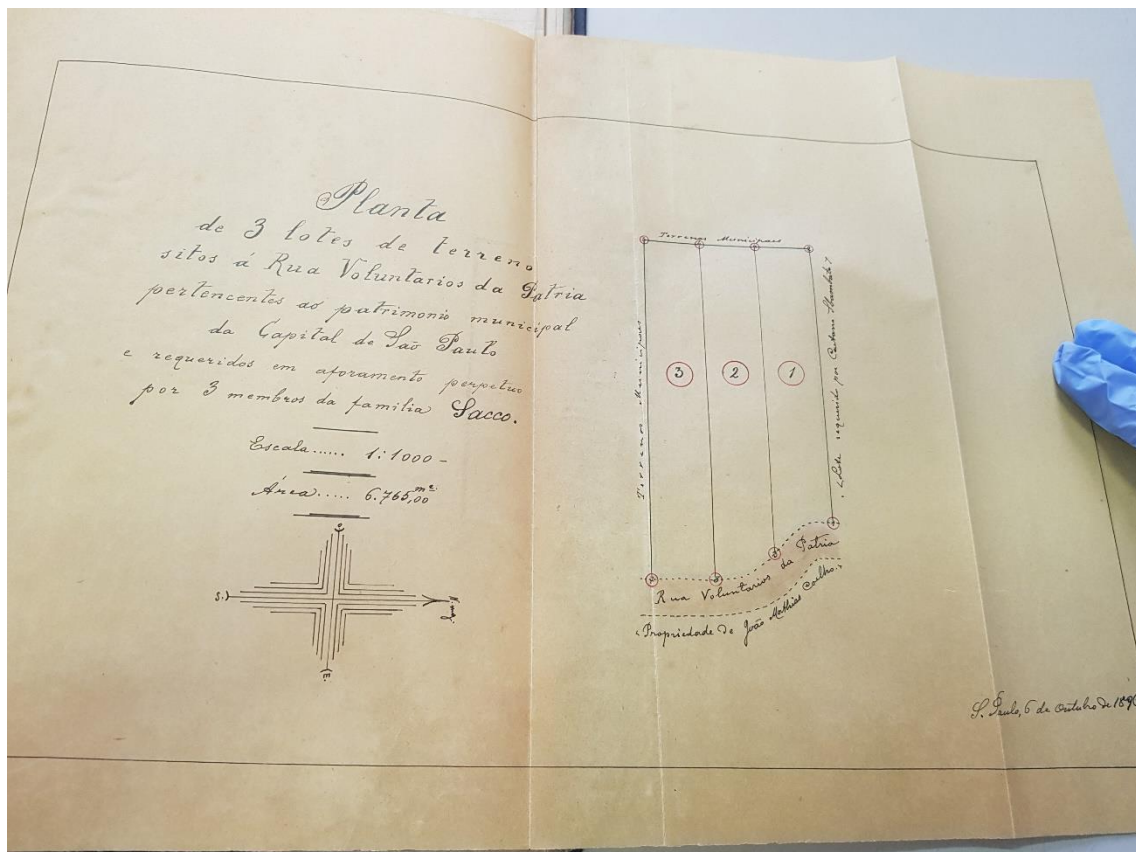 Planta
de 3 lotes de terreno
sitos á Rua Voluntarios da Patria
pertencentes ao patrimonio municipal
da Capital de São Paulo
e requeridos em aforamento perpetuo
por 3 membros da familia Sacco.
Escala...... 1:1000 -
Área..... 6.765,00 m2.
S.
Terrenos Municipaes
Terrenos Municipaes
3
2
1
Lote requerido por Caetano
Rua Voluntarios da Patria
Propriedade de João Mathias Coelho.
S. Paulo, 6 de Outubro de 189